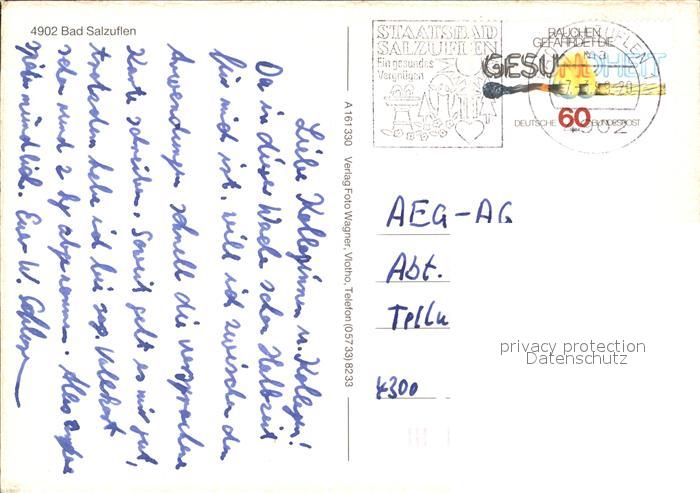 4902 Bad Salzuflen
Liebe Kolleginnen u. Kollegen!
Da in dieser Woche schon Halbzeit
für mich ist, will ich zwischen den
Anwendungen schnell die versprochene
Karte schreiben. Soweit geht es mir gut,
trotzdem habe ich bei sog. Vollkost
schon rund 2 kg abgenommen. Alles andere
später mündlich. Euer W.
A 161 330 Verlag Foto Wagner, Vlotho, Telefon (05733) 8233
STAATSBAD
SALZUFLEN
Ein gesundes
Vergnügen
RAUCHEN
GEFÄHRDET DIE
GESUNDHEIT
60
DEUTSCHE BUNDESPOST
4902
AEG-AG
Abt.
4300
privacy protection
Datenschutz